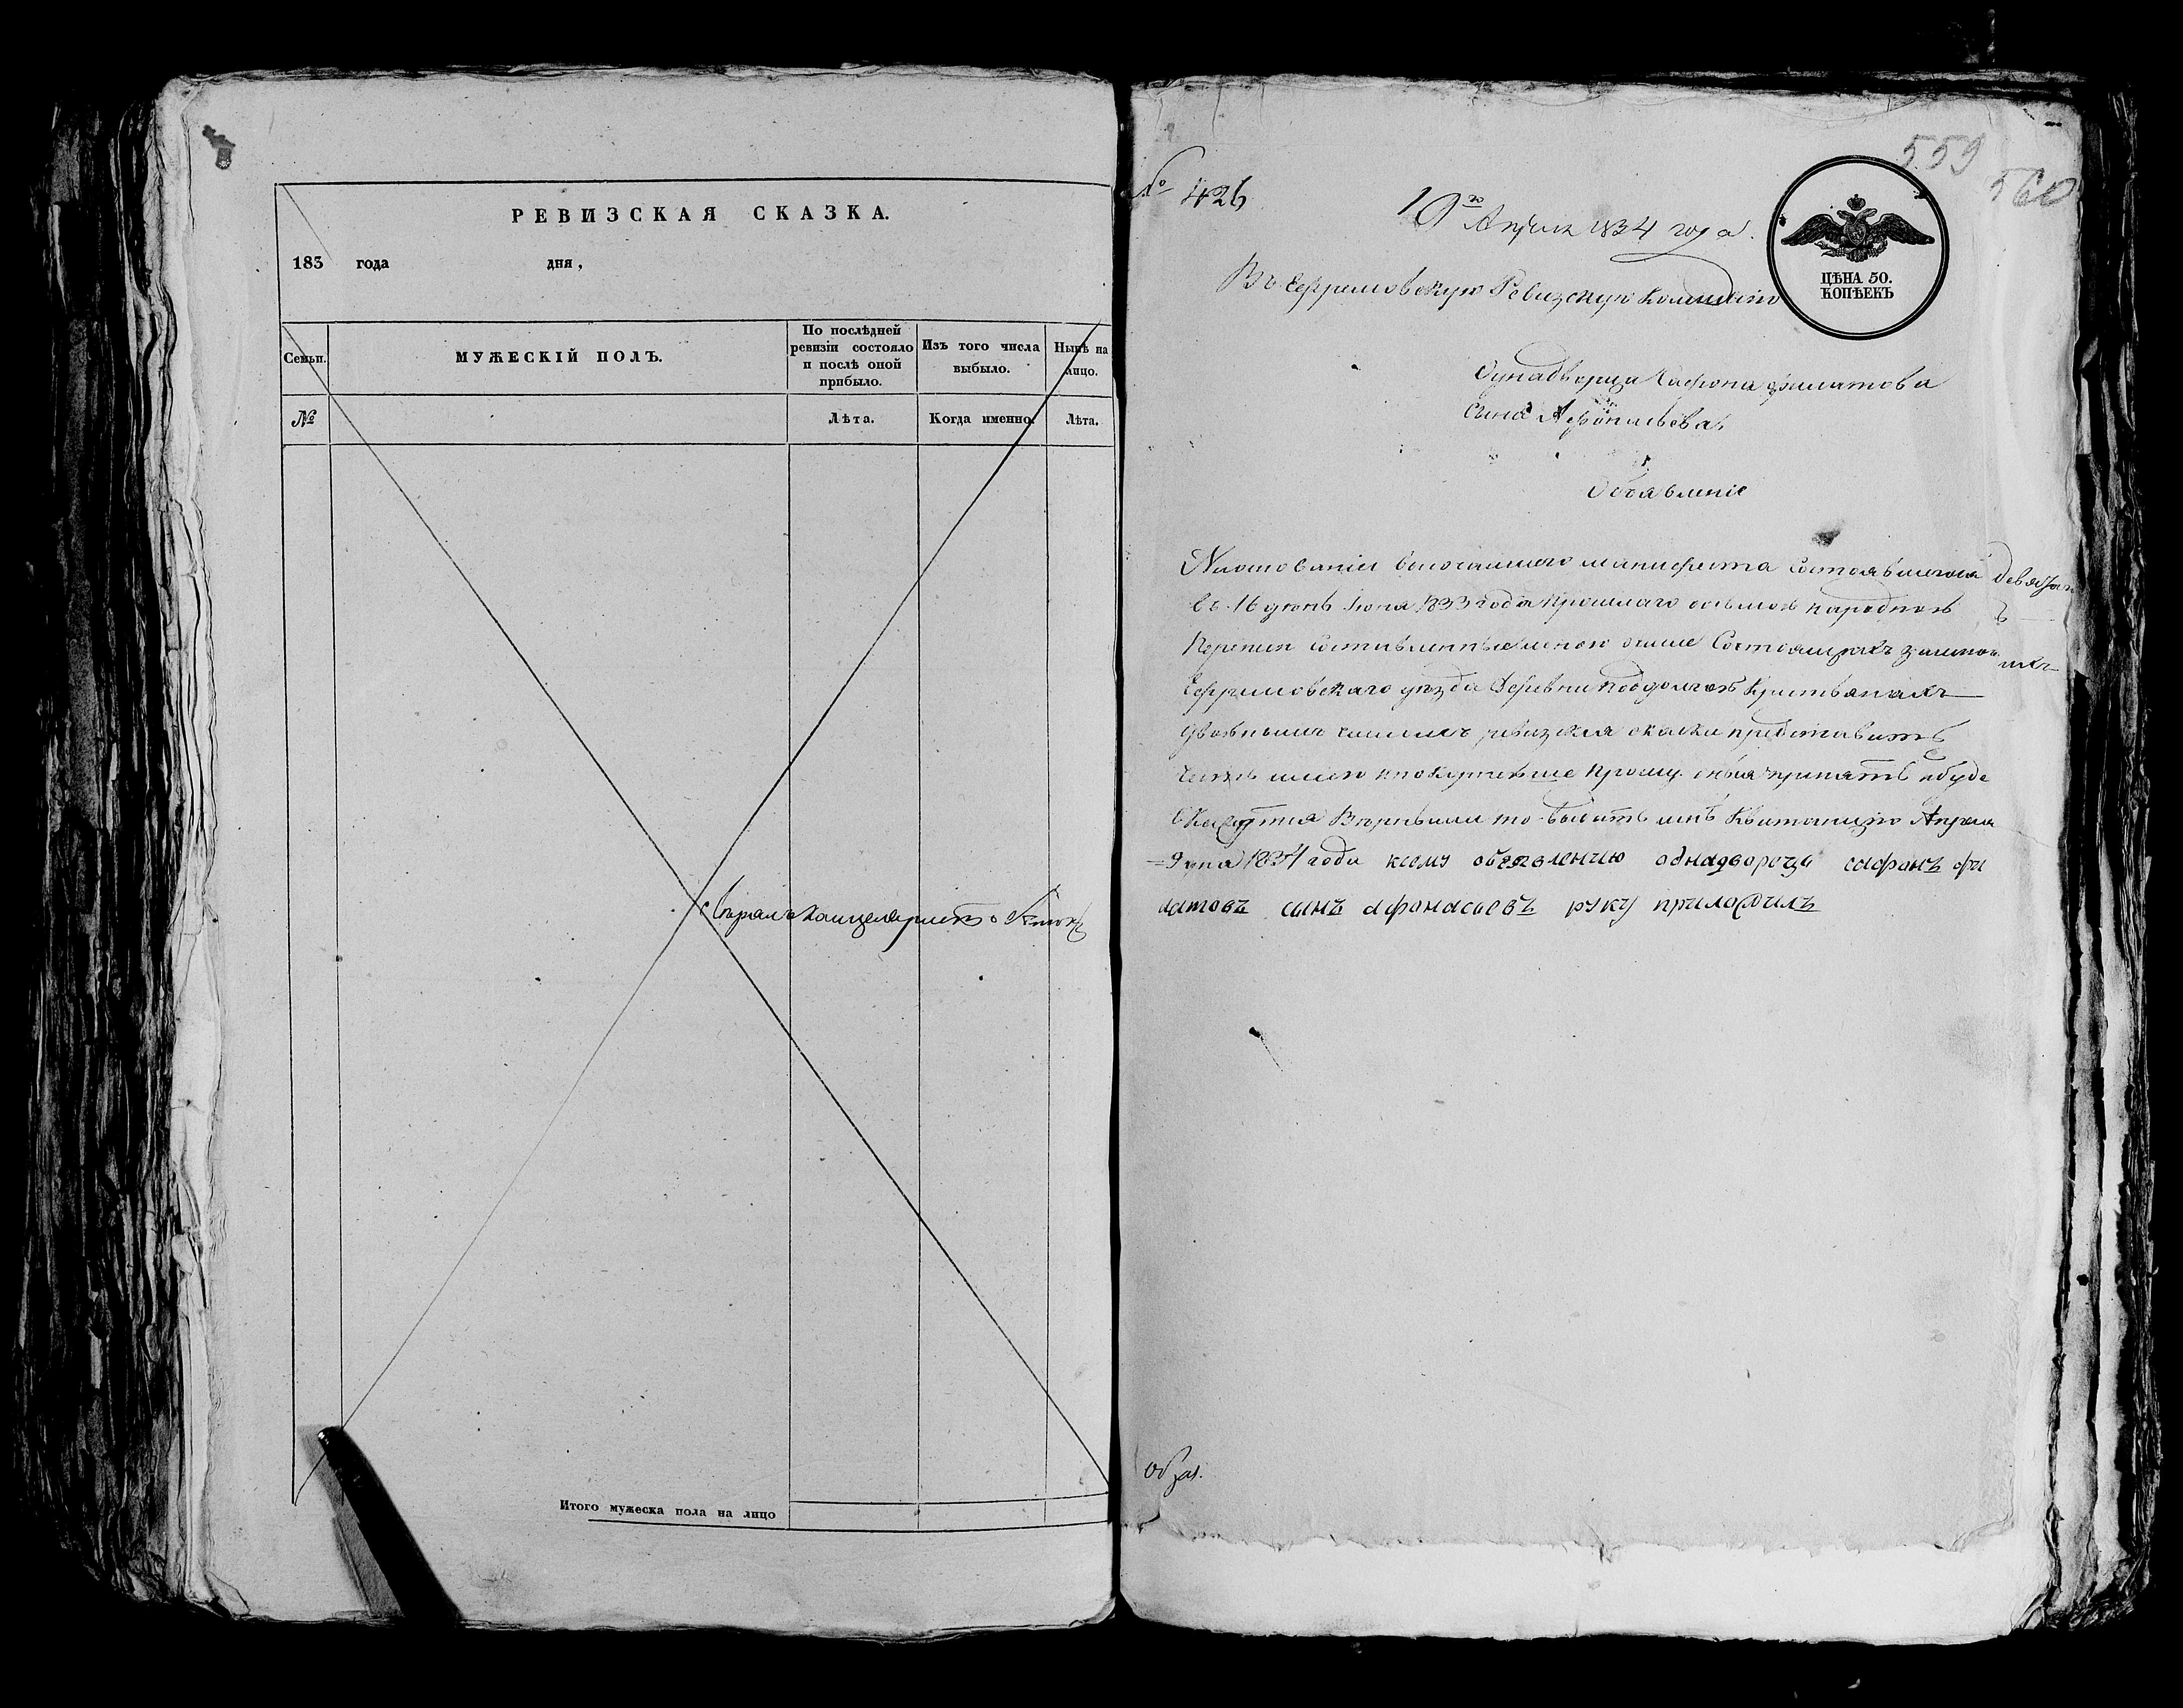 РЕВИЗСКАЯ СКАЗКА.
183 года дня,
Семьи.
МУЖЕСКІЙ ПОЛЪ.
По послѣдней
ревизіи состояло
и послѣ оной
прибыло.
Изъ того числа
выбыло.
Нынѣ на
лицо.
№
Лѣта.
Когда именно.
Лѣта.
сверялъ Канцеляристъ
Итого мужеска пола на лицо
559
560
№ 426
10го Апреля 1834 года.
ЦѢНА 50.
КОПѢЕКЪ
Въ Ефремовскую Ревизскую Комисію
Однадворца Сафона Филатова
Сына Афонасьева
Объявленіе
На основаніи высочайшаго манифеста состоявшагося
въ 16 день Іюня 1833 года прошлаго осьмой народной
Переписи составленные мною Состоящихъ за мною
Ефремовскаго уезда Деревни Крестьянахъ
двойнымъ числомъ ревизскія скаски представить
честь имею и покорнейше Прошу оныя принять и буде
окажутся Верными то выдать мнѣ Квитанцию Апреля
9 дня 1834 года к сему объявлению однадворецъ сафонъ фи
латовъ сынъ афонасьевъ руку приложилъ